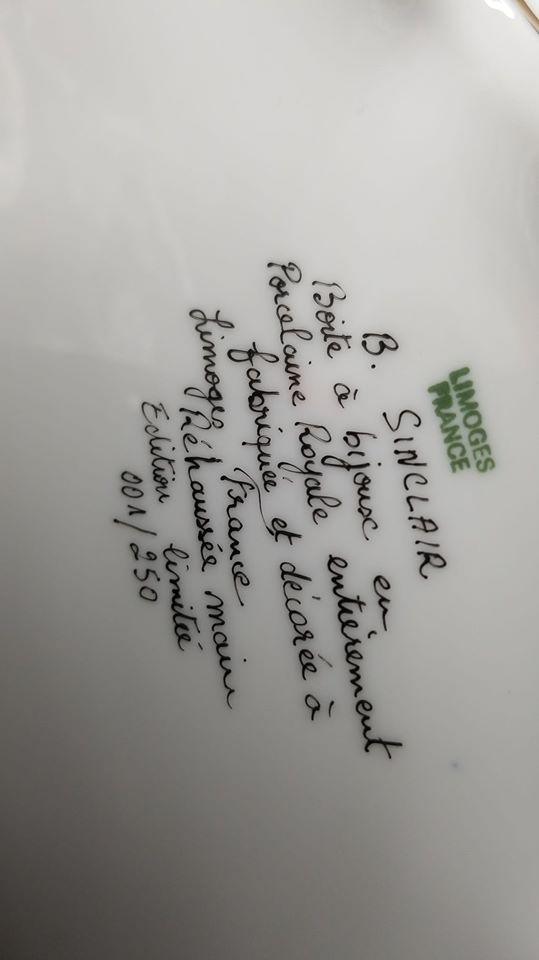 LIMOGES
FRANCE
B. SINCLAIR
Boite à bijoux en
Porcelaine Royale entièrement
fabriquée et décorée à
Limoges France
Réhaussée main
Edition limitée
001/250